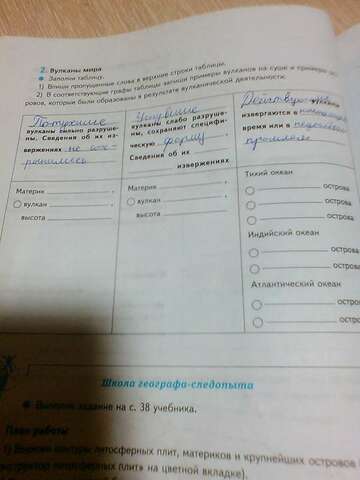 2. Вулканы мира
Заполни таблицу.
1) Впиши пропущенные слова в верхние строки таблицы.
2) В соответствующие графы таблицы запиши примеры вулканов на суше и примеры ост-
ровов, которые были образованы в результате вулканической деятельности.
Потухшие
вулканы сильно разруше-
ны. Сведения об их из-
вержениях не сох-
ранились
Уснувшие
вулканы слабо разруше-
ны, сохраняют специфи-
ческую форму.
Сведения об их
извержениях
Действую
извергаются в
время или в
прошлом
Материк ,
вулкан ,
высота .
Материк ,
вулкан ,
высота
Тихий океан
острова
острова
острова
Индийский океан
острова
острова
Атлантический океан
острова
остро
Школа географа-следопыта
Выполни задание на с. 38 учебника.
План работы
1) Вырежи контуры литосферных плит, материков и крупнейших островов
структор литосферных плит» на цветной вкладке).